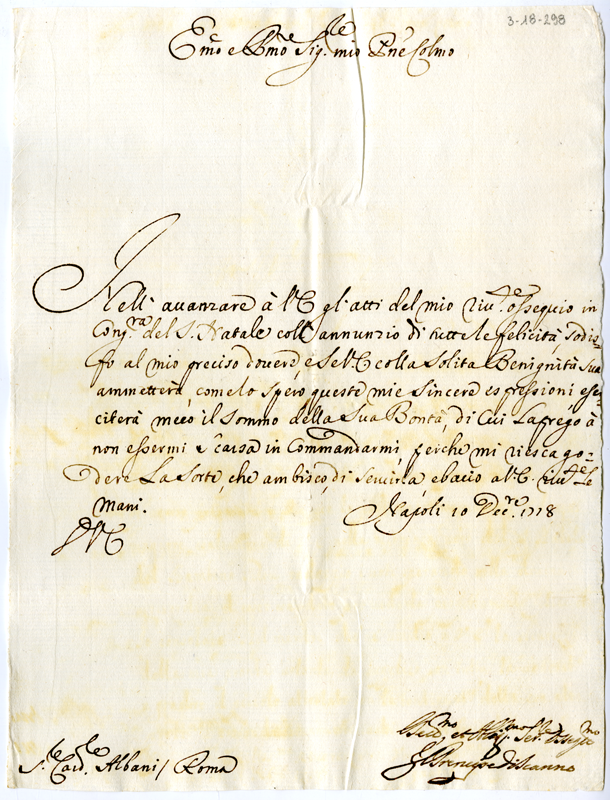 3-18-298
Emo e Rmo Sig.re mio Pne Colmo
Nell' avanzare à V.E. gl'atti del mio riv.te ossequio in
Cong.ra del S. Natale coll' annunzio di tutte le felicità, sodis=
fo al mio preciso dovere, e se V.E. colla solita Benignità sua
ammetterà, come lo spero queste mie sincere espressioni, eser=
citerà meco il sommo della sua Bontà, di Cui La prego à
non essermi scarsa in Commandarmi, perche mi riesca go=
dere La sorte, che ambisco, di servirla, e bacio a V.E. riv.te Le
mani. Napoli 10 Dec.re 1718
D V E
S.r Card.le Albani / Roma
Il Prencipe di Scanno